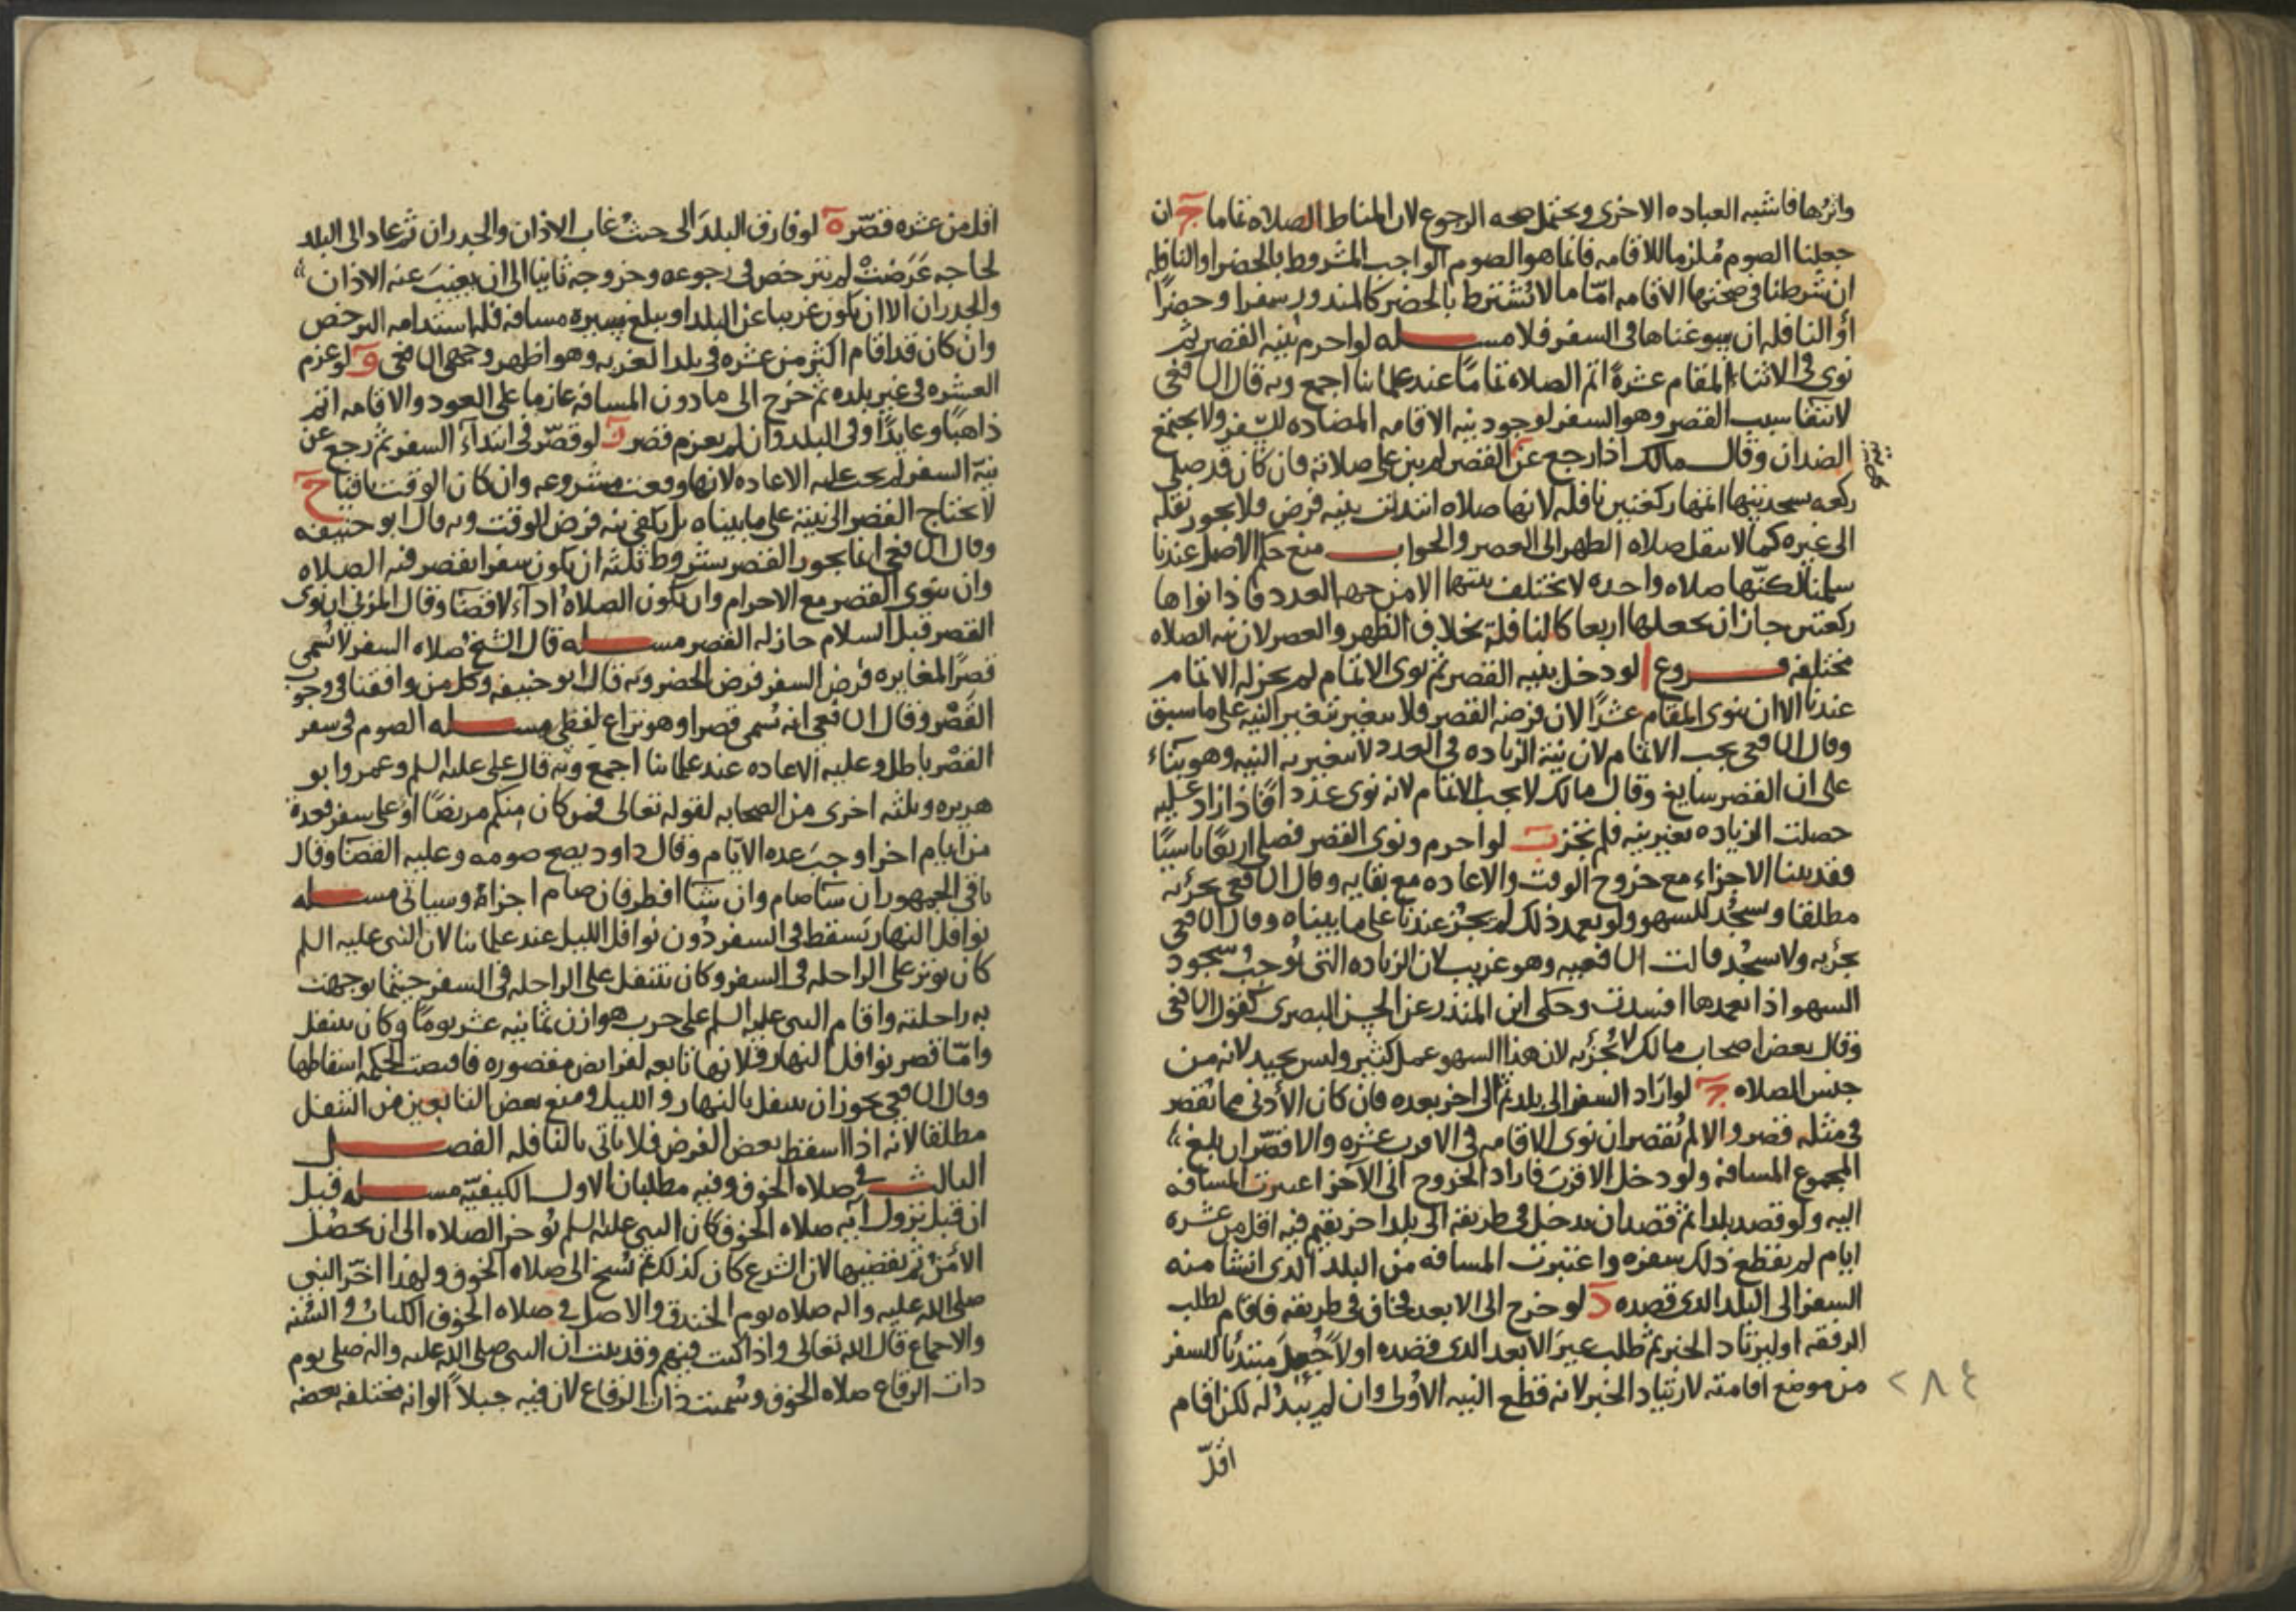 واثرها فاشبه العباده الاخرى ويحتمل صحه الرجوع لان المناط الصلاه تماما ج ان
جعلنا الصوم ملزما للاقامه فانما هو الصوم الواجب المشروط بالحضر او النافله
ان شرطنا في صحتها الاقامه امّا ما لا يشترط بالحضر كالمنذور سفرا وحضراً
أو النافله ان سوغناها في السفر فلا مسله لو احرم بنيه القصر ثم
نوى في الاثناء المقام عشرةً اتم الصلاه تماماً عند علمائنا اجمع وبه قال الشافعى
لانتفا سبب القصر وهو السفر لوجود نيه الاقامه المضاده للسفر ولا يجتمع
الضدان وقال مالك اذا رجع عن القصر لم يبن على صلاته فان كان قد صلى
ركعه بسجدتيها اتمها ركعتين نافله لانها صلاه ابتدئت بنيه فرض فلا يجوز نقله
الى غيره كما لا ينقل صلاه الظهر الى العصر والجواب منع حكم الاصل عندنا
سلمنا لكنّها صلاه واحده لا تختلف نيتها الا من جهه العدد فاذا نواها
ركعتين جاز ان يجعلها اربعا كالنافلة بخلاف الظهر والعصر لان نيه الصلاه
مختلفه فروع ا لو دخل بنيه القصر ثم نوى الاتمام لم يجز له الاتمام
عندنا الا ان ينوى المقام عشرًا لان فرضه القصر فلا يتغير بتغير النيه على ما سبق
وقال الشافعى يجب الاتمام لان نيّة الزياده في العدد لا يتغير به النيه وهو بناء
على ان القصر سايغ وقال مالك لا يجب الاتمام لانه نوى عددا فاذا زاد عليه
حصلت الزياده بغير نيه فلم تجز ب لو احرم ونوى القصر فصلى اربعًا ناسيًا
فقد بينا الاجزاء مع خروج الوقت والاعاده مع بقايه وقال الشافعى يجزئه
مطلقا ويسجُد للسهو ولو تعمد ذلك لم يجُز عندنا على ما بيناه وقال الشافعى
يجزئه ولا يسجُد قالت الشافعيه وهو غريب لان الزياده التى تُوجب سجود
السهو اذا تعمدها افسدت وحكى ابن المنذر عن الحسن البصرى كقول الشافعى
وقال بعض اصحاب مالك لا تُجزئه لان هذا السهو عمل كثير وليس بجيد لانه من
جنس الصلاه ج لو اراد السفر الى بلد ثم الى اخر بعده فان كان الأدنى مما تقصر
في مثله قصر والا لم تقصر ان نوى الاقامه في الاقرب عشره والا قصّر ان بلغ
المجموع المسافه ولو دخل الاقرب فاراد الخروج الى الآخر اعتبرت المسافه
اليه ولو قصد بلدا ثم قصد ان يدخل في طريقه الى بلد اخر يقيم فيه اقل من عشره
ايام لم يقطع ذلك سفره واعتبرت المسافه من البلد الذى انشا منه
السفر الى البلد الذى قصده د لو خرج الى الابعد فخاف في طريقه فاقام لطلب
الرفقه او ليرتاد الخبر ثم طلب غير الابعد الذى قصده اولا جُعل مبتدئا للسفر
من موضع اقامته لارتياد الخبر لانه قطع النيه الاولى وان لم يبد له لكن اقام
٢٨٤
اقلّ
اقل من عشره قصّر ه لو فارق البلد الى حيثُ غاب الاذان والجدران ثم عاد الى البلد
لحاجه عَرَضتْ لم يترخص في رجوعه وخروجه ثانيا الى ان يغيبَ عنه الاذان
والجدران الا ان يكون غريبا عن البلد او يبلغ سيره مسافه فله استدامه الترخص
وان كان قد اقام اكثر من عشره في بلد الغربه وهو اظهر وجهى الشافعى و لو عزم
العشره في غير بلده ثم خرج الى ما دون المسافه عازما على العود والاقامه اتم
ذاهبًا وعايدًا وفى البلد وان لم يعزم قصر ز لو قصّر في ابتدآء السفر ثم رجع عن
نيّة السفر لم يجب عليه الاعاده لانها وقعت مشروعه وان كان الوقت باقيا ح
لا يحتاج القصر الى نيته على ما بيناه بل يكفى نيه فرض الوقت وبه قال ابو حنيفه
وقال الشافعى انما يجوز القصر بشروط ثلثه ان يكون سفرا يقصر فيه الصلاه
وان ينوى القصر مع الاحرام وان يكون الصلاه اداءً لا قضاء وقال المزنى ان نوى
القصر قبل السلام جاز له القصر مسله قال الشيخ صلاه السفر لا تُسمى
قصرًا لمغايره فرض السفر فرض الحضر وبه قال ابو حنيفه وكل من وافقنا في وجوب
القَصْر وقال الشافعى انه تسمى قصرا وهو نزاع لفظى مسله الصوم في سفر
القصْر باطل وعليه الاعاده عند علمائنا اجمع وبه قال على عليه السلم وعمر وابو
هريره وثلثه اخرى من الصحابه لقوله تعالى فمن كان منكم مريضًا او على سفر فعدة
من ايام اخر اوجبَ عده الايّام وقال داود يصح صومه وعليه القضا وقال
باقى الجمهور ان شا صام وان شا افطر فان صام اجزاهُ وسياتى مسله
نوافل النهار تسقط في السفر دُون نوافل الليل عند علمائنا لان النبى عليه السلم
كان يوتر على الراحله في السفر وكان يتنفل على الراحله في السفر حيثما توجهت
به راحلته واقام النبى عليه السلم على حرب هوازن ثمانيه عشر يومًا وكان يتنفل
وامّا قصر نوافل النهار فلانها تابعه لفرائض مقصوره فاقتضت الحكمه اسقاطها
وقال الشافعى يجوز ان يتنفل بالنهار والليل ومنع بعض التابعين من التنفل
مطلقا لانه اذا اسقط بعض الفرض فلا ياتى بالنافله الفصل
الثالث في صلاه الخوف وفيه مطلبان الاول الكيفيّه مسله قبل
ان قبل نزول آيه صلاه الخوف كان النبى عليه السلم يُوخر الصلاه الى ان يحصُل
الأمنْ ثم يقضيها لان الشرع كان كذلك ثم نُسخ الى صلاه الخوف ولهذا اخّر النبي
صلى الله عليه واله صلاه يوم الخندق والاصل في صلاه الخوف الكتابُ والسُنه
والاجماع قال الله تعالى واذا كنت فيهم وقد ثبت ان النبى صلى الله عليه واله صلى يوم
ذات الرقاع صلاه الخوف وسُميت ذات الرقاع لان فيه جبلاً الوانه مختلفه بعضه